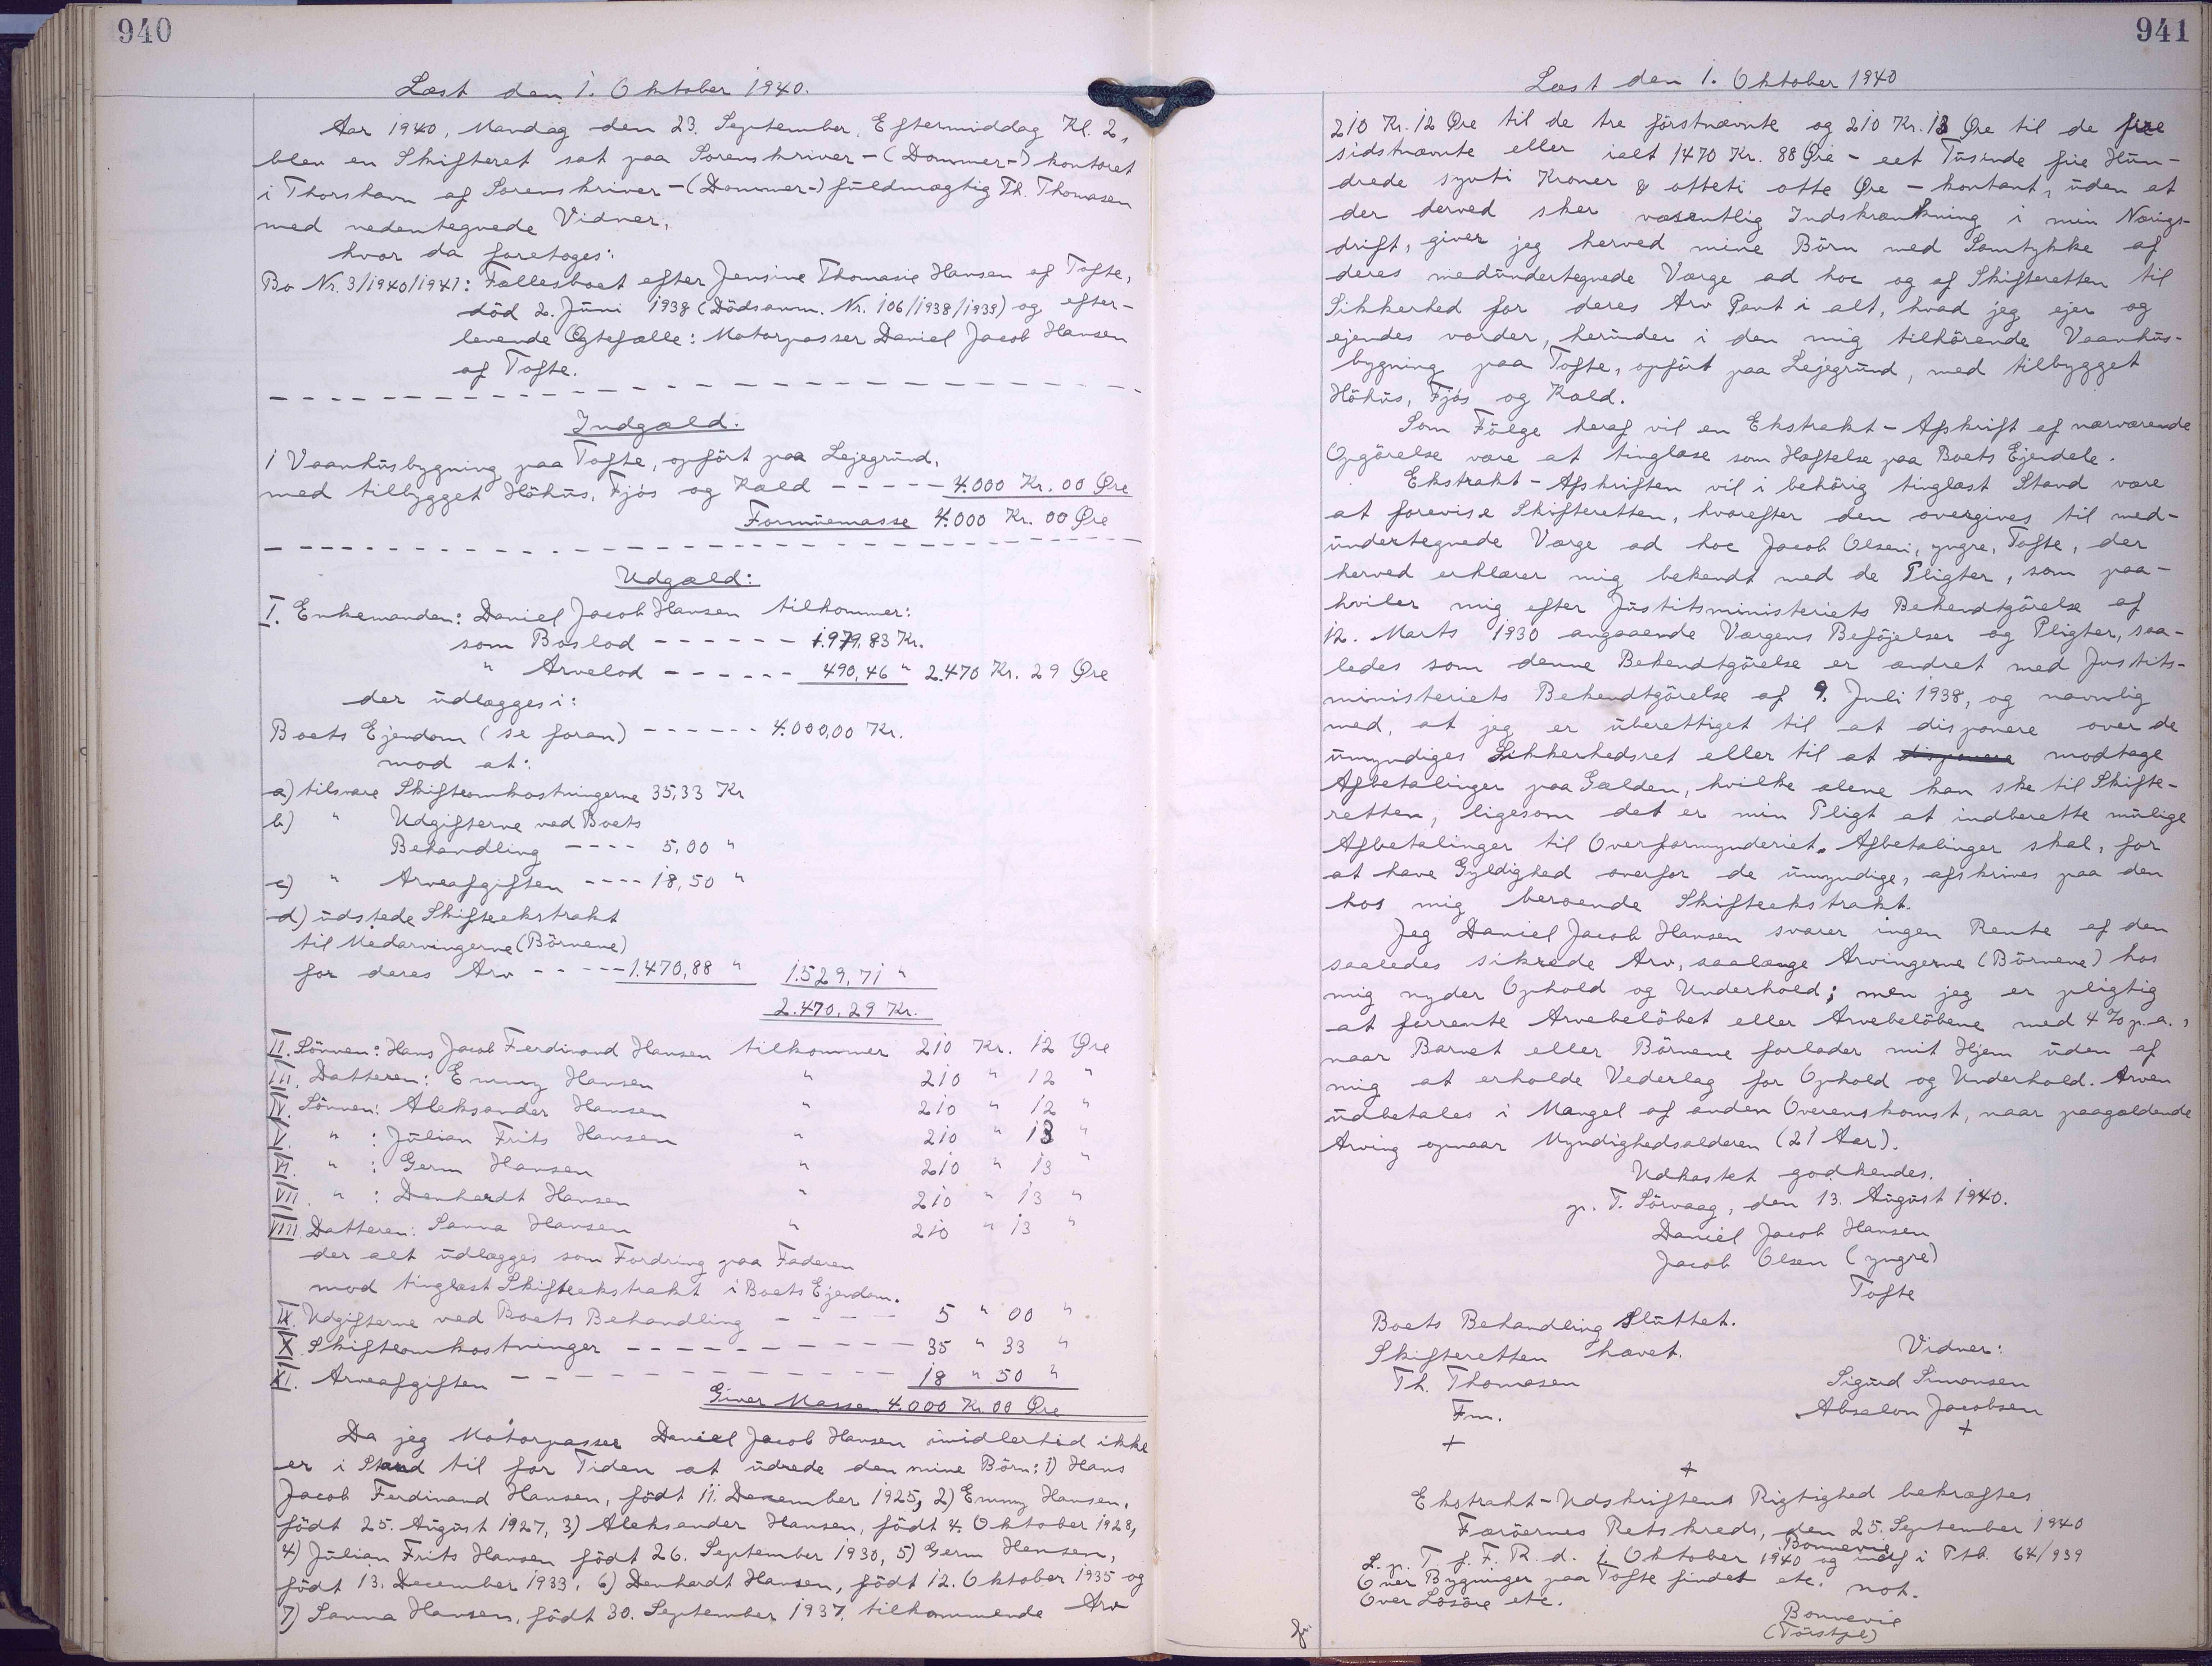 940
Læst den 1. Oktober 1940.
Aar 1940, Mandag den 23. September, Eftermiddag Kl. 2,
blev en Skifteret sat paa Sorenskriver-(Dommer-)kontoret
i Thorshavn af Sorenskriver-(Dommer-)fuldmægtig Th. Thomasen
med nedentegnede Vidner,
hvor da foretoges:
Bo Nr. 3/1940/1941: Fællesboet efter Jensine Thomasie Hansen af Tofte,
död 2. Juni 1938 (Dödsanm. Nr. 106/1938/1939) og efter-
levende Ægtefælle: Motorpasser Daniel Jacob Hansen
af Tofte.
Indgæld:
1 Vaanhusbygning paa Tofte, opfört paa Lejegrund,
med tilbygget Höhus, Fjós og Kæld - - - - - 4.000 Kr. 00 Øre
Formuemasse 4.000 Kr. 00 Øre
Udgæld:
I. Enkemanden: Daniel Jacob Hansen tilkommer:
som Boslod - - - - - - 1.979,83 Kr.
" Arvelod - - - - - - 490,46 " 2.470 Kr. 29 Øre
der udlægges i:
Boets Ejendom (se foran) - - - - - - 4.000,00 Kr.
mod at:
a) tilsvare Skifteomkostningerne 35,33 Kr
b) " Udgifterne ved Boets
Behandling - - - - 5,00 "
c) " Arveafgiften - - - - 18,50 "
d) udstede Skifteekstrakt
til Medarvingerne (Börnene)
for deres Arv - - - - - 1.470,88 " 1.529,71 "
2.470,29 Kr.
II. Sönnen: Hans Jacob Ferdinand Hansen tilkommer 210 Kr. 12 Øre
III. Datteren: Emmy Hansen " 210 " 12 "
IV. Sönnen: Aleksander Hansen " 210 " 12 "
V. " : Julian Frits Hansen " 210 " 13 "
VI. " : Germ Hansen " 210 " 13 "
VII. " : Denhardt Hansen " 210 " 13 "
VIII Datteren: Sanna Hansen " 210 " 13 "
der alt udlægges som Fordring paa Faderen
mod tinglæst Skifteekstrakt i Boets Ejendom.
IX. Udgifterne ved Boets Behandling - - - - - 5 " 00 "
X. Skifteomkostninger - - - - - - - - - 35 " 33 "
XI. Arveafgiften - - - - - - - - - - - - 18 " 50 "
Giver Massen 4.000 Kr. 00 Øre
Da jeg Motorpasser Daniel Jacob Hansen imidlertid ikke
er i Stand til for Tiden at udrede den mine Börn: 1) Hans
Jacob Ferdinand Hansen, födt 11. December 1925, 2) Emmy Hansen,
födt 25. August 1927, 3) Aleksander Hansen, födt 4. Oktober 1928,
4) Julian Frits Hansen födt 26. September 1930, 5) Germ Hansen,
födt 13. December 1933, 6) Denhardt Hansen, födt 12. Oktober 1935 og
7) Sanna Hansen, födt 30. September 1937, tilkommende Arv
941
Læst den 1. Oktober 1940
210 Kr. 12 Øre til de tre förstnævnte og 210 Kr. 13 Øre til de fire
sidstnævnte eller ialt 1470 Kr. 88 Øre - eet Tusinde fire Hun-
drede syvti Kroner & otteti otte Øre - kontant, uden at
der derved sker væsentlig Indskrænkning i min Nærings-
drift, giver jeg herved mine Börn med Samtykke af
deres medundertegnede Værge ad hoc og af Skifteretten til
Sikkerhed for deres Arv Pant i alt, hvad jeg ejer og
ejendes vorder, herunder i den mig tilhörende Vaanhus-
bygning paa Tofte, opfört paa Lejegrund, med tilbygget
Höhus, Fjós og Kæld.
Som Fölge heraf vil en Ekstrakt-Afskrift af nærværende
Opgörelse være at tinglæse som Hæftelse paa Boets Ejendele.
Ekstrakt-Afskriften vil i behörig tinglæst Stand være
at forevise Skifteretten, hvorefter den overgives til med-
undertegnede Værge ad hoc Jacob Olsen, yngre, Tofte, der
herved erklærer mig bekendt med de Pligter, som paa-
hviler mig efter Justitsministeriets Bekendtgörelse af
12. Marts 1930 angaaende Værgens Beföjelser og Pligter, saa-
ledes som denne Bekendtgörelse er ændret med Justits-
ministeriets Bekendtgörelse af 9. Juli 1938, og navnlig
med, at jeg er uberettiget til at disponere over de
umyndiges Sikkerhedsret eller til at disponere modtage
Afbetalinger paa Gælden, hvilke alene kan ske til Skifte-
retten, ligesom det er min Pligt at indberette mulige
Afbetalinger til Overformynderiet. Afbetalinger skal, for
at have Gyldighed overfor de umyndige, afskrives paa den
hos mig beroende Skifteekstrakt.
Jeg Daniel Jacob Hansen svarer ingen Rente af den
saaledes sikrede Arv, saalænge Arvingerne (Börnene) hos
mig nyder Ophold og Underhold; men jeg er pligtig
at forrente Arvebelöbet eller Arvebelöbene med 4 % p.a.,
naar Barnet eller Börnene forlader mit Hjem uden af
mig at erholde Vederlag for Ophold og Underhold. Arven
udbetales i Mangel af anden Overenskomst, naar paagældende
Arving opnaar Myndighedsalderen (21 Aar).
Udkastet godkendes.
p. T. Sörvaag, den 13. August 1940.
Daniel Jacob Hansen
Jacob Olsen (yngre)
Tofte
Boets Behandling sluttet.
Skifteretten hævet. Vidner:
Th. Thomasen Sigurd Simonsen
Fm. Absalon Jacobsen
+ +
+
Ekstrakt-Udskriftens Rigtighed bekræftes
Færöernes Retskreds, den 25. September 1940
Bonnevie
L. p. T. f. F. R. d. 1. Oktober 1940 og indf i Ptb. 64/939
Over Bygninger paa Tofte findet etc.
Over Lösöre etc. not.
Bonnevie